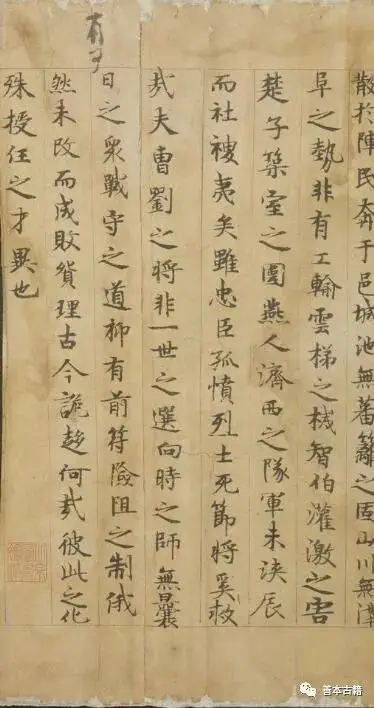 散於陣民奔于邑城池無蕃籬之固山川無溝
阜之勢非有工輸雲梯之械智伯灌激之害
楚子築室之圍燕人濟西之隊軍未浹辰
而社稷夷矣雖忠臣孤憤烈士死節將奚救
哉夫曹劉之將非一世之選向時之師無曩
日之衆戰守之道抑有前符險阻之制俄
然未改而成敗貿理古今詭趍何哉彼此之化
殊授任之才異也
善本古籍